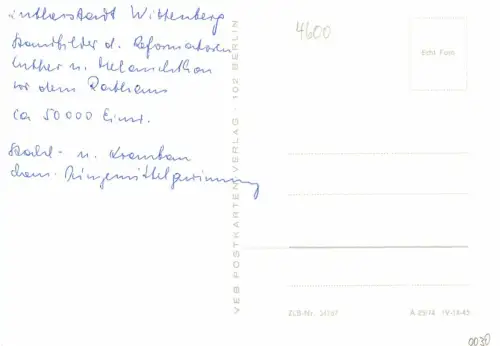 Lutherstadt Wittenberg
Standbilder d. Reformatoren
Luther u. Melanchthon
vor dem Rathaus
ca 50000 Einw.
Stahl- u. Kranbau
chem. Düngemittelgewinnung
4600
Echt Foto
VEB POSTKARTENVERLAG · 102 BERLIN
A 89/74 IV-14-45
0030